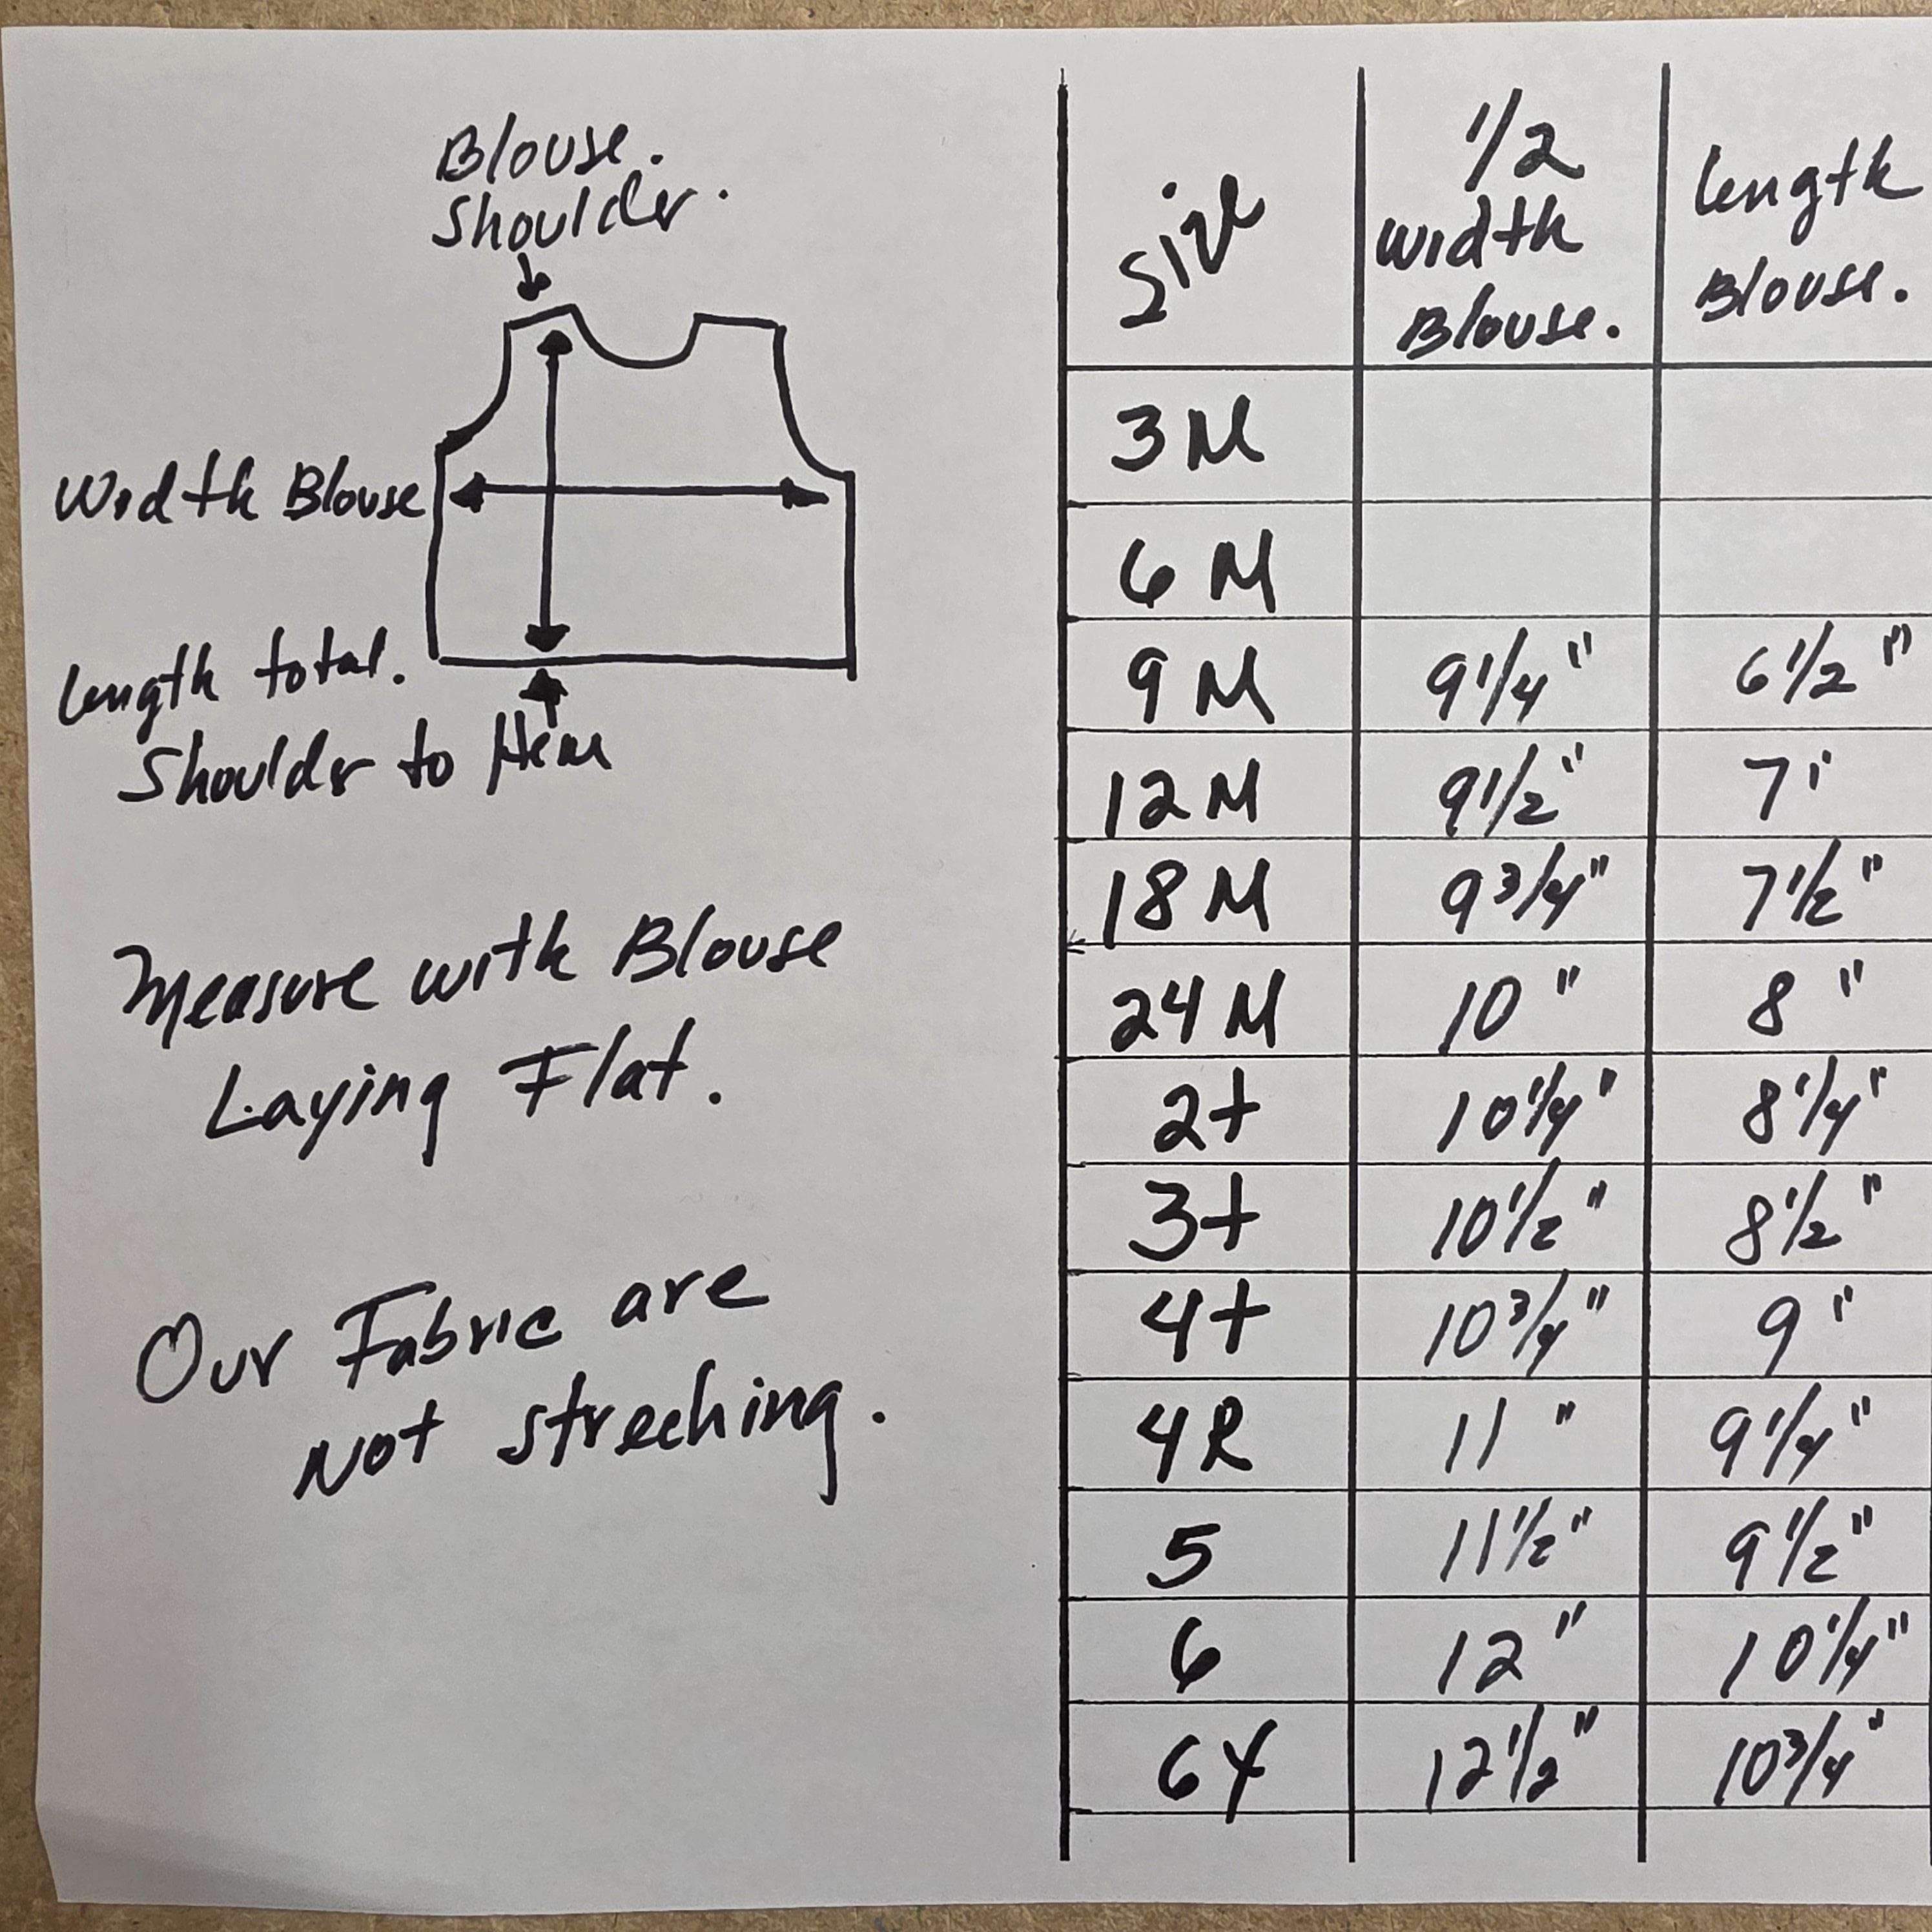 Blouse.
Shoulder.
Width Blouse
Length total.
Shoulder to Hem
Measure with Blouse
Laying Flat.
Our Fabric are
Not streching.
Size
1/2
width
Blouse.
length
Blouse.
3M
6 M
9 M 9 1/4" 6 1/2"
12 M 9 1/2" 7"
18 M 9 3/4" 7 1/2"
24 M 10" 8"
2t 10 1/4" 8 1/4"
3t 10 1/2" 8 1/2"
4t 10 3/4" 9"
4R 11" 9 1/4"
5 11 1/2" 9 1/2"
6 12" 10 1/4"
6X 12 1/2" 10 3/4"